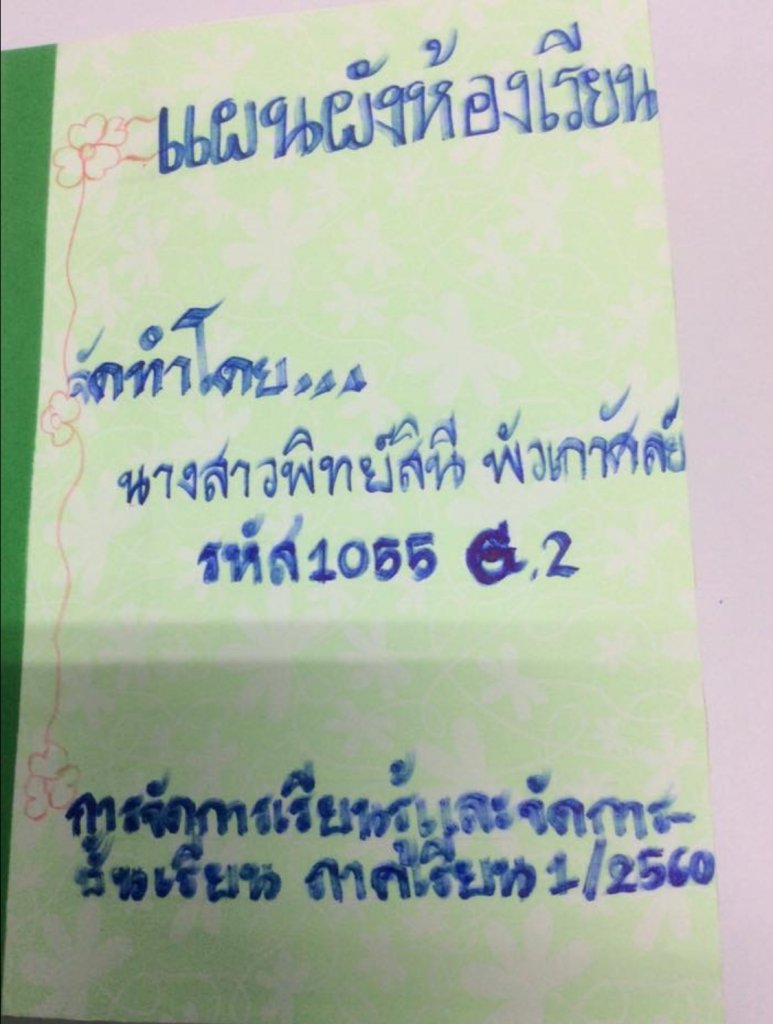 แผนผังห้องเรียน
จัดทำโดย...
นางสาวพิทย์สินี
รหัส 1055 .2
การจัดการเรียนรู้และจัดการ-
ชั้นเรียน ภาคเรียน 1/2560